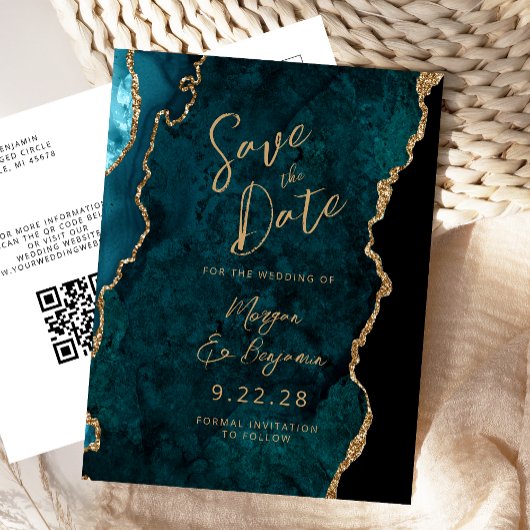 Save
the
Date
FOR THE WEDDING OF
Morgan
& Benjamin
9.22.28
FORMAL INVITATION
TO FOLLOW
BENJAMIN
CIRCLE
MI 45678
MORE INFORMATION
THE QR CODE
OR VISIT OUR
WEDDING WEBSITE